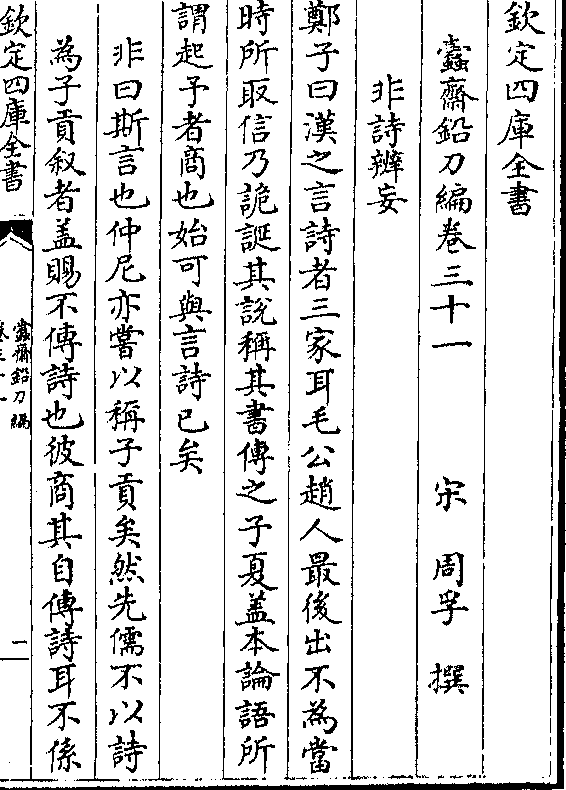 欽定四庫全書
蠹齋鉛刀編卷三十一　宋　周孚　撰
非詩辨妄
鄭子曰漢之言詩者三家耳毛公趙人最後出不為當
時所取信乃詭誕其說稱其書傳之子夏蓋本論語所
謂起予者商也始可與言詩已矣
非曰斯言也仲尼亦嘗以稱子貢矣然先儒不以詩
為子貢叙者盖賜不傳詩也彼商其自傳詩耳不係
欽定四庫全書
蠹齋鉛刀編
卷三十一
一